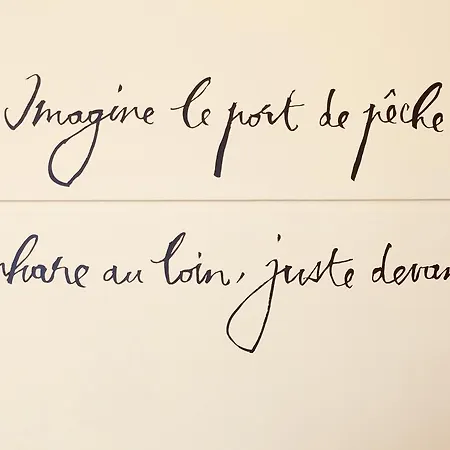 Imagine le port de pêche
phare au loin, juste devan